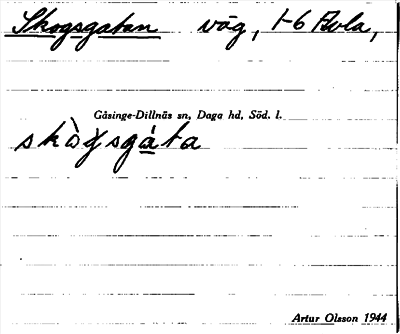 Skogsgatan väg, 1-6 Avla,
Gåsinge-Dillnäs sn, Daga hd, Söd. l.
skògsgáta
Artur Olsson 1944